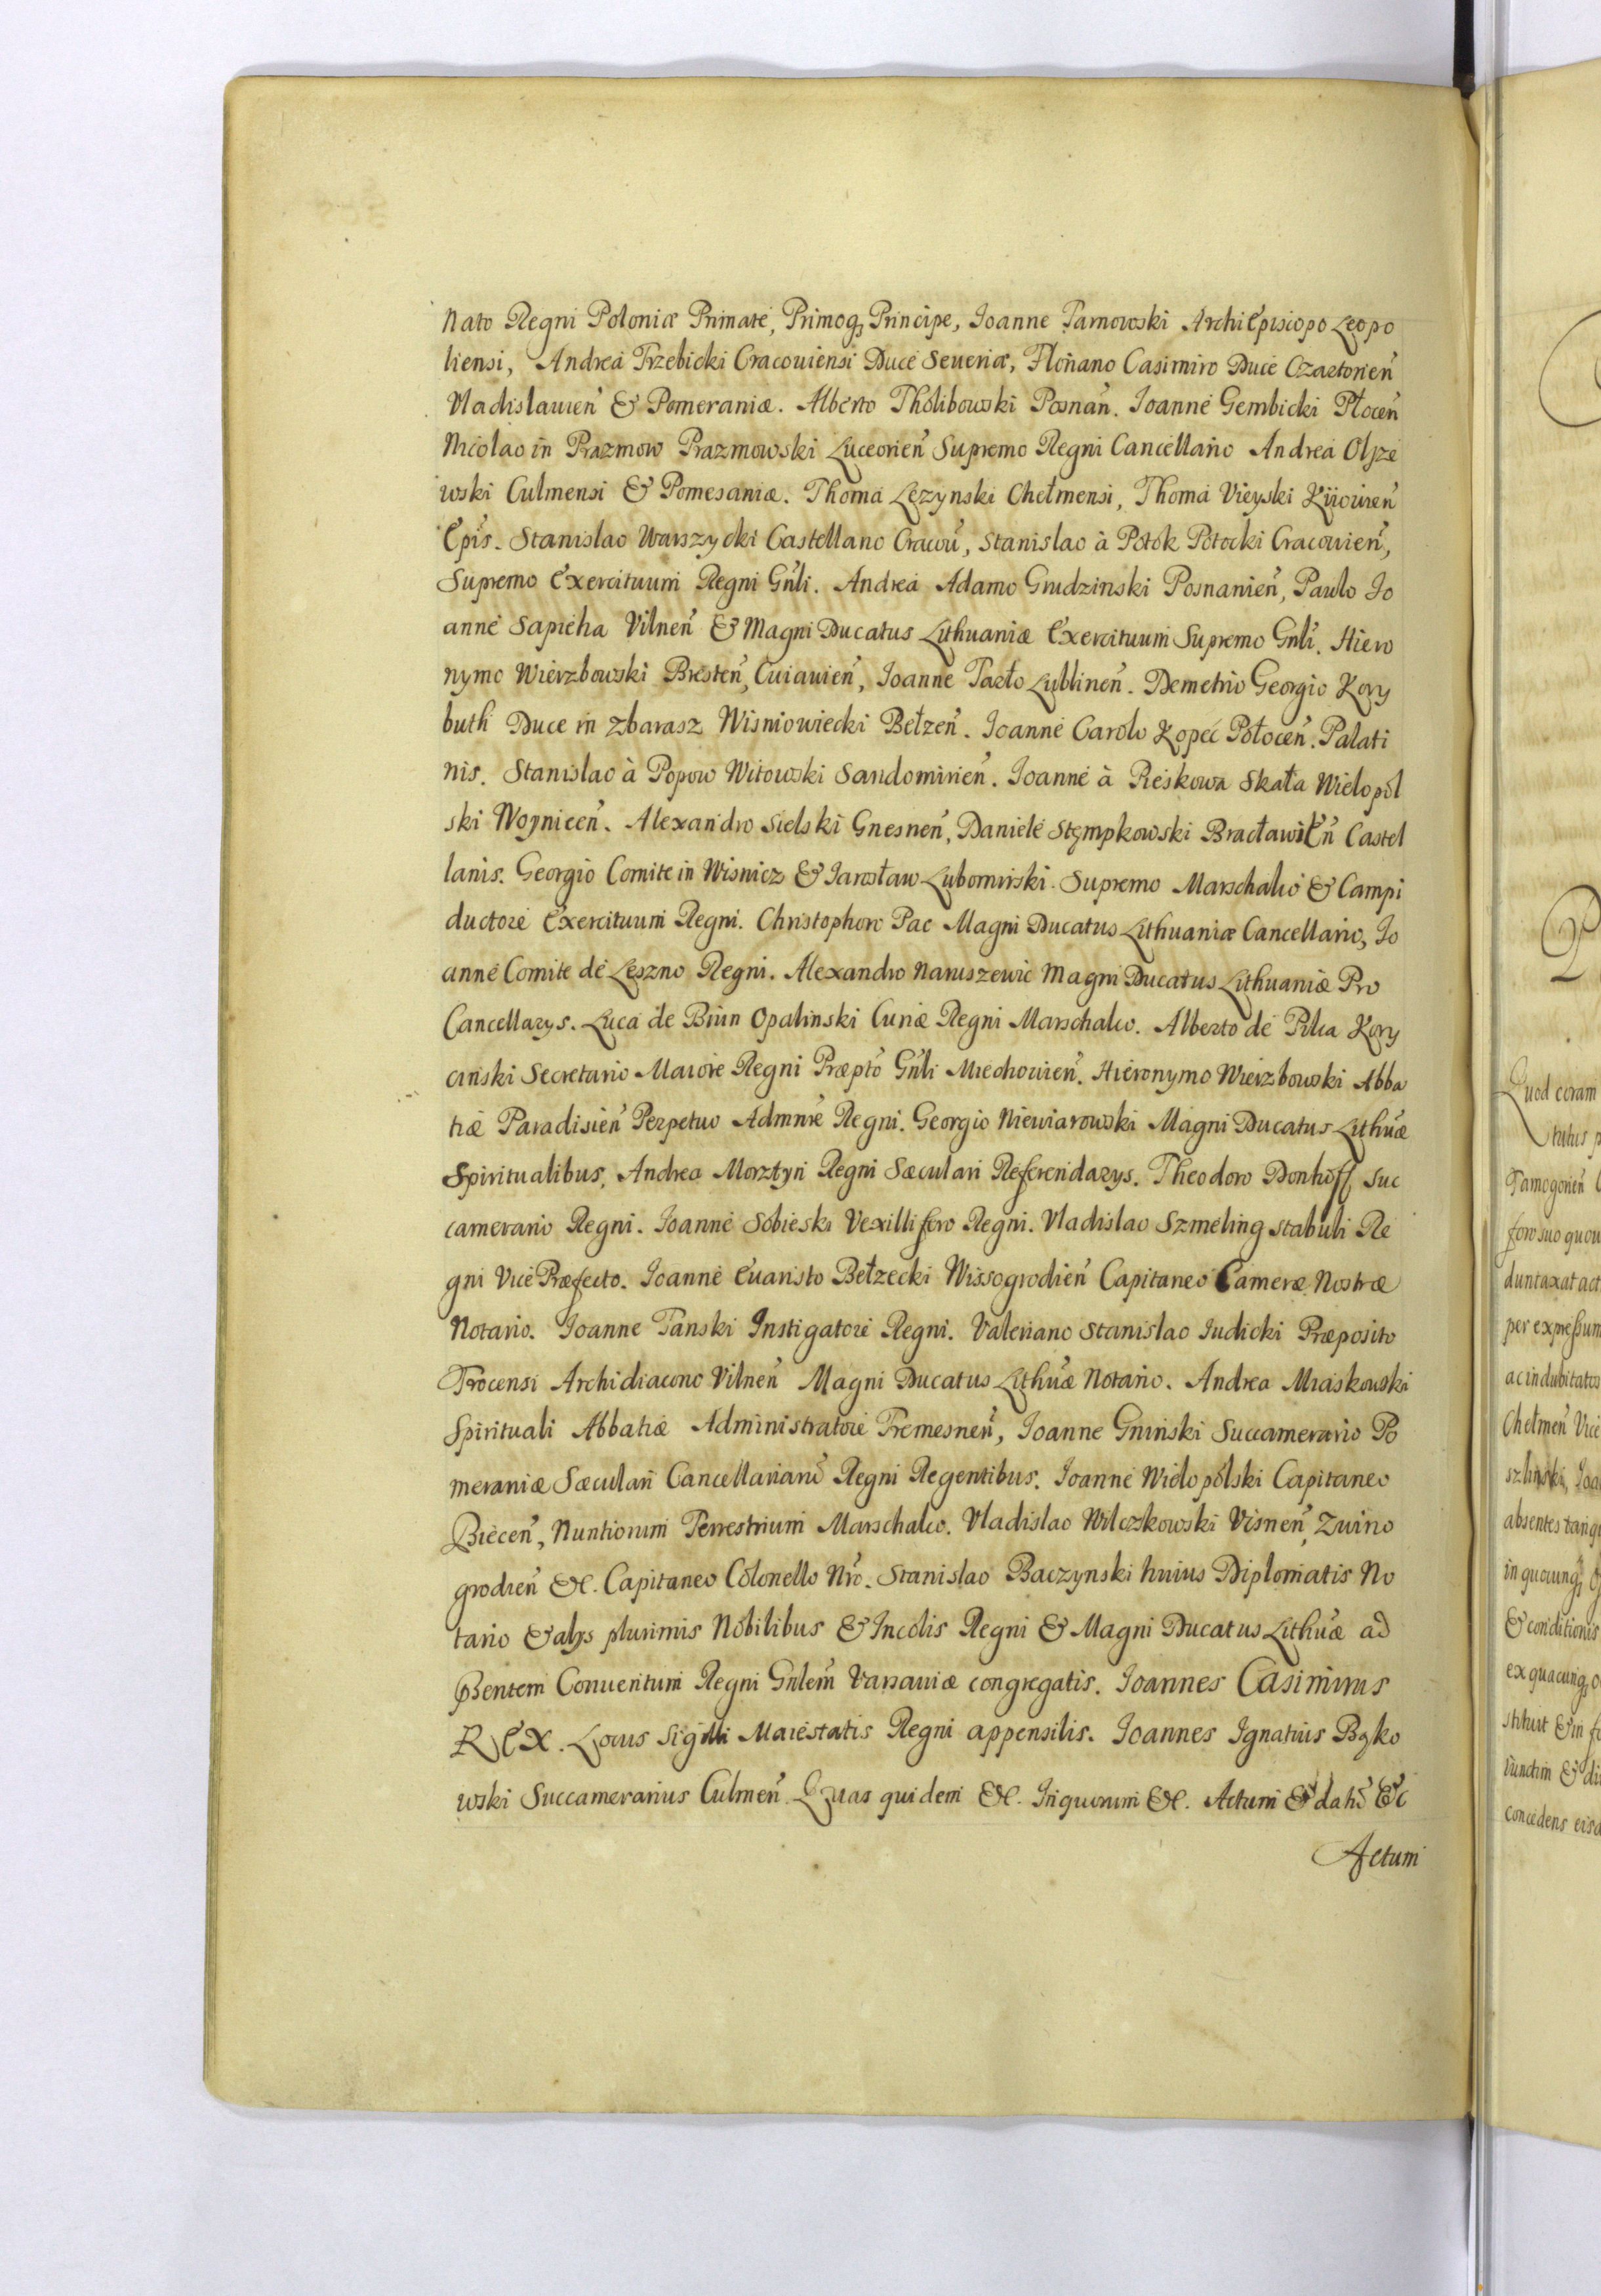 Nato Regni Poloniæ Primate, Primoq₃ Principe, Ioanne Tarnowski ArchiEpiscopo Leopo
liensi, Andrea Trzebicki Cracouiensi Duce Seueriæ, Floriano Casimiro Duce Czartorien̄
Vladislauien̄ & Pomeraniæ. Alberto Tholibowski Posnan̄. Ioanne Gembicki Płocen̄
Nicolao in Prazmow Prazmowski Luceorien̄ Supremo Regni Cancellario Andrea Olsze
wski Culmensi & Pomesaniæ. Thoma Lęzynski Chełmensi, Thoma Vieyski Kijouien̄
Ep̄is. Stanislao Warszycki Castellano Cracou̅, Stanislao à Potok Potocki Cracouien̄,
Supremo Exercituum Regni Gn̄li. Andrea Adamo Grudzinski Posnanien̄, Pawlo Io
anne Sapieha Vilnen̄ & Magni Ducatus Lithuaniæ Exercituum Supremo Gn̄li. Hiero
nymo Wierzbowski Bresten̄, Cuiauien̄, Ioanne Tarło Lublinen̄. Demetrio Georgio Kory
buth Duce in Zbarasz Wisniowiecki Bełzen̄. Ioanne Carolo Kopeć Połocen̄. Palati
nis. Stanislao à Popow Witowski Sandomirien̄. Ioanne à Pieskowa Skała Wielopol
ski Woynicen̄. Alexandro Sielski Gnesnen̄, Daniele Stęmpkowski Bracławien̄ Castel
lanis. Georgio Comite in Wisnicz & Iarosław Lubomirski Supremo Marschalco & Campi
ductore Exercituum Regni. Christophoro Pac Magni Ducatus Lithuaniæ Cancellario, Io
anne Comite de Leszno Regni. Alexandro Naruszewic Magni Ducatus Lithuaniæ Pro
Cancellarys. Luca de Bnin Opalinski Curiæ Regni Marschalco. Alberto de Pilca Kory
cinski Secretario Maiore Regni Præpt̄o Gn̄li Miechouien̄. Hieronymo Wierzbowski Abba
tiæ Paradisien̄ Perpetuo Admnr̄e Regni. Georgio Niewiarowski Magni Ducatus Lithūæ
Spiritualibus, Andrea Morsztyn Regni Sæculari Referendarys. Theodoro Donhoff Suc
camerario Regni. Ioanne Sobieski Vexillifero Regni. Vladislao Szmeling Stabuli Re
gni Vice Præfecto. Ioanne Euaristo Bełzecki Wissogrodien̄ Capitaneo Cameræ Nostræ
Notario. Ioanne Tanski Instigatore Regni. Valeriano Stanislao Iudicki Præposito
Trocensi Archidiacono Vilnen̄ Magni Ducatus Lithūæ Notario. Andrea Miaskowski
Spirituali Abbatiæ Administratore Tremesnen̄, Ioanne Gninski Succamerario Po
meraniæ Sæculari Cancellariarū Regni Regentibus. Ioanne Wielopolski Capitaneo
Biecen̄, Nuntiorum Terrestrium Marschalco. Vladislao Wilczkowski Visnen̄, Zwino
grodien̄ &c. Capitaneo Colonello Nr̄o. Stanislao Baczynski huius Diplomatis No
tario & alys plurimis Nobilibus & Incolis Regni & Magni Ducatus Lithūæ ad
p̄sentem Conuentum Regni Gn̄lem Varsauiæ congregatis. Ioannes Casimirus
REX. Locus Sigilli Maiestatis Regni appensilis. Ioannes Ignatius Bąko
wski Succamerarius Culmen̄. Quas quidem &c. In quorum &c. Actum & datū &c
Actum
Quod coram
Tamogorien̄
foro suo quou
duntaxat act
per expressum
ac indubitatos
Chełmen̄ Vice
absentes tanq
in quocunq₃
& conditionis
ex quacunq₃ o
stituit & in fo
iunctim & di
concedens eisd